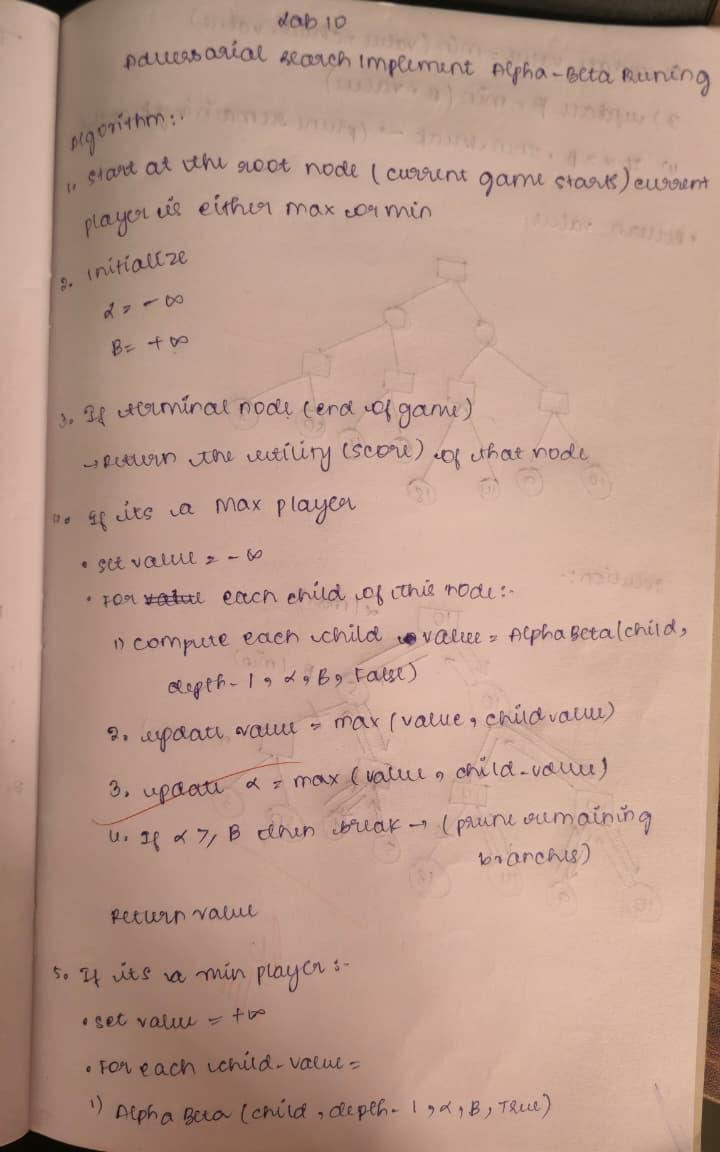 Lab 10
Adversarial search Implement Alpha-Beta Runing
Algorithm:-
1. Start at the root node (current game starts) current
player is either max or min
2. initialize
α = -∞
B = +∞
3. If terminal node (end of game)
→ Return the utility (score) of that node
4. If its a Max player
• set value = -∞
• For each child of this node:-
1) compute each child value = AlphaBeta(child,
depth-1, α, B, False)
2. update value = max (value, child value)
3. update α = max (value, child-value)
4. If α >, B then break → (prune remaining
branches)
Return value
5. If its a min player:-
• set value = +∞
• For each child-value =
1) Alpha Beta (child, depth-1, α, B, True)